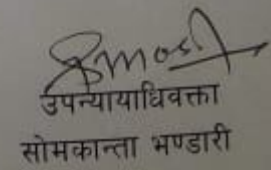 उपन्यायाधिवक्ता
सोमकान्ता भण्डारी